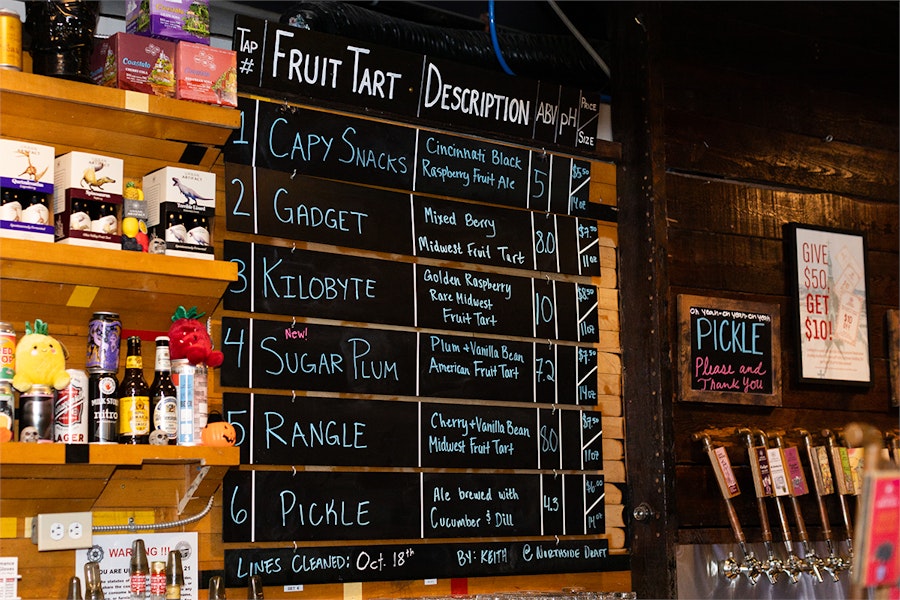 TAP # FRUIT TART DESCRIPTION ABV pH PRICE SIZE
1 CAPY SNACKS Cincinnati Black Raspberry Fruit Ale 5 $5.50 14oz
2 GADGET Mixed Berry Midwest Fruit Tart 8.0 $7.50 11oz
3 KILOBYTE Golden Raspberry Rare Midwest Fruit Tart 10 $8.50 11oz
New!
4 SUGAR PLUM Plum + Vanilla Bean American Fruit Tart 7.2 $7.50 14oz
5 RANGLE Cherry + Vanilla Bean Midwest Fruit Tart 8.0 $7.50 11oz
6 PICKLE Ale brewed with Cucumber & Dill 4.3 $6.00 14oz
LINES CLEANED: Oct. 18th BY: KEITH @ NORTHSIDE DRAFT
OH YEAH-OH YEAH-OH YEAH
PICKLE
Please and
Thank You
GIVE
$50,
GET
$10!
WARNING!!!
MILK STOUT
nitro
LAGER